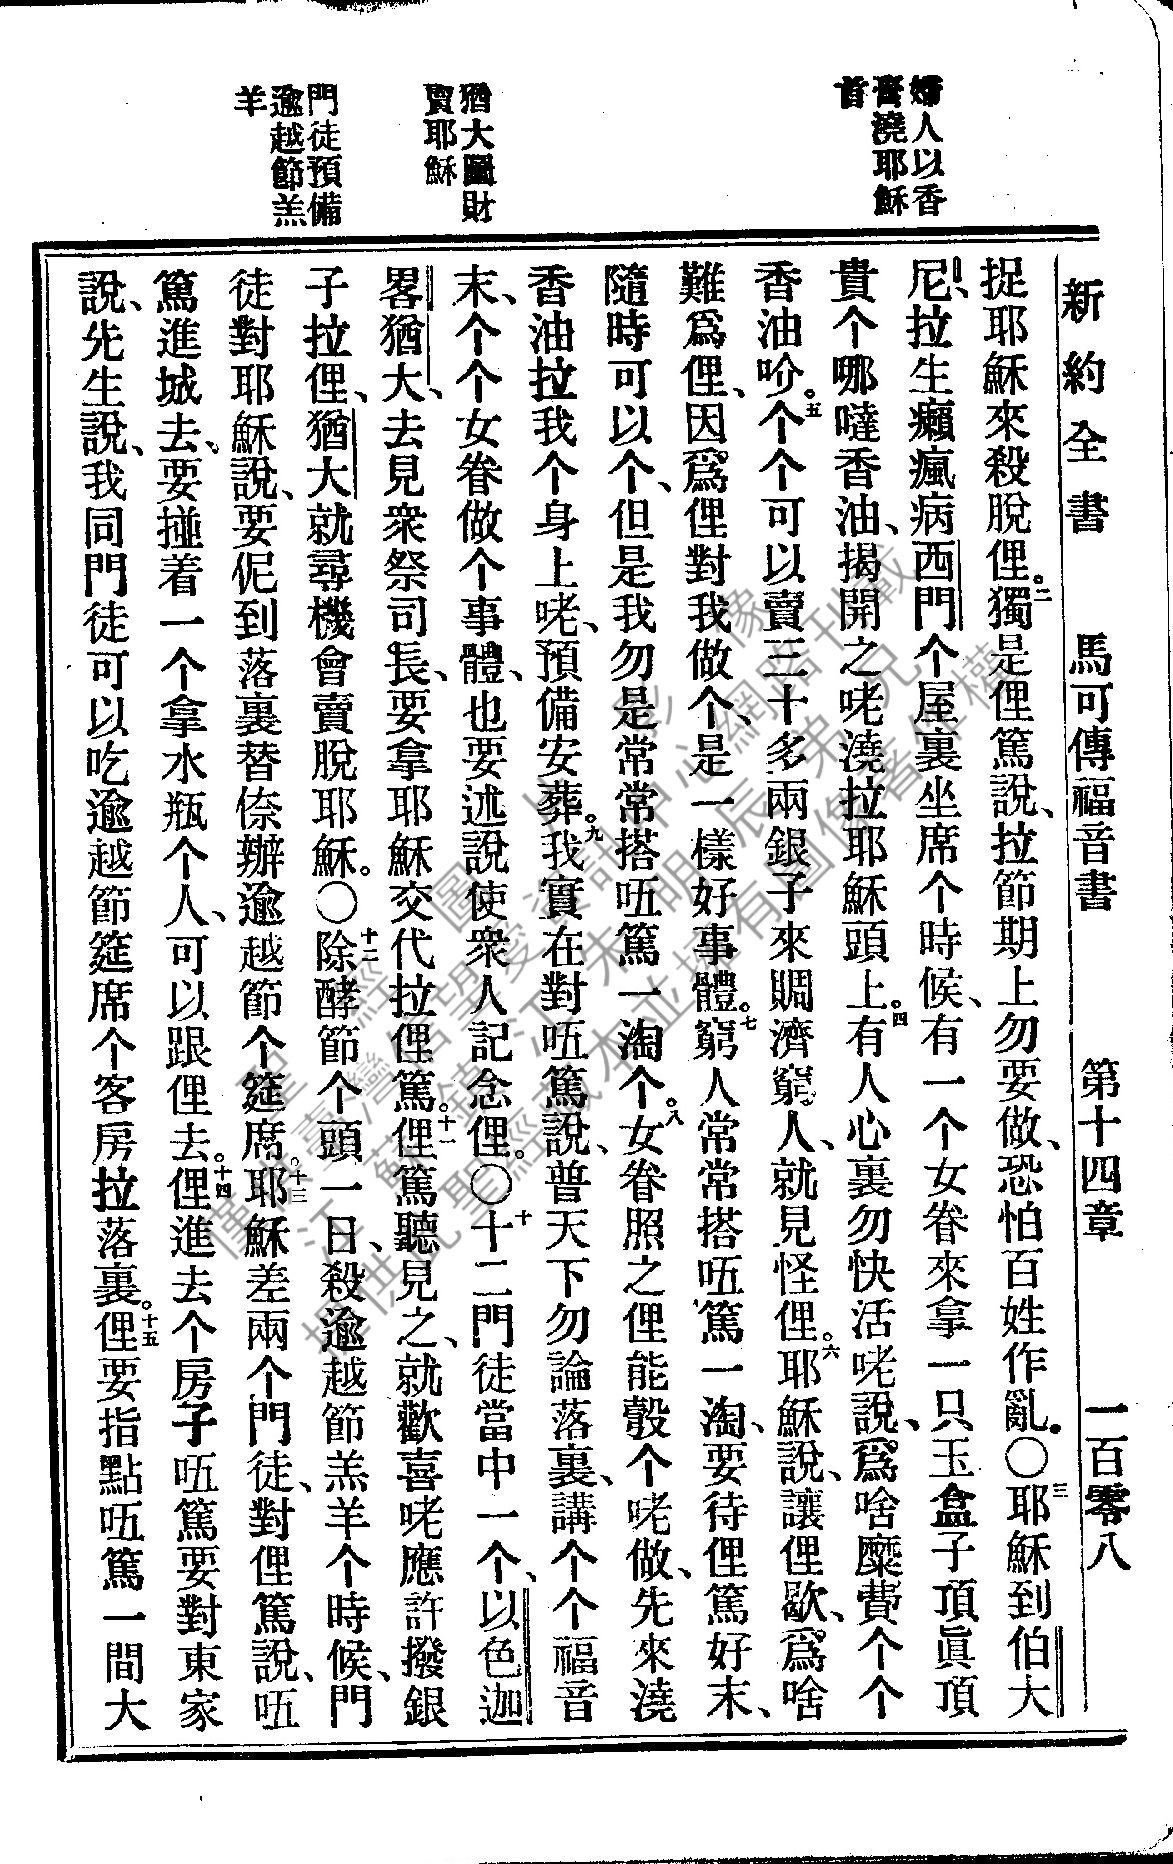 新約全書　馬可傳福音書　第十四章　一百零八
婦人以香
膏澆耶穌
首
猶大圖財
賣耶穌
門徒預備
逾越節羔
羊
捉耶穌來殺脫俚。二獨是俚篤說、拉節期上勿要做、恐怕百姓作亂。〇三耶穌到伯大
尼、拉生癩瘋病西門个屋裏坐席个時候、有一个女眷來拿一只玉盒子頂眞頂
貴个哪噠香油、揭開之咾澆拉耶穌頭上。四有人心裏勿快活咾說、爲啥糜費个个
香油吤。五个个可以賣三十多兩銀子來賙濟窮人、就見怪俚。六耶穌說、讓俚歇、爲啥
難爲俚、因爲俚對我做个、是一樣好事體。七窮人常常搭㕶篤一淘、要待俚篤好末、
隨時可以个、但是我勿是常常搭㕶篤一淘个。八女眷照之俚能彀个咾做、先來澆
香油拉我个身上咾、預備安葬。九我實在對㕶篤說、普天下勿論落裏、講个个福音
末、个个女眷做个事體、也要述說使衆人記念俚。〇十十二門徒當中一个、以色迦
畧猶大、去見衆祭司長、要拿耶穌交代拉俚篤。十一俚篤聽見之、就歡喜咾應許撥銀
子拉俚、猶大就尋機會賣脫耶穌。〇十二除酵節个頭一日、殺逾越節羔羊个時候、門
徒對耶穌說、要伲到落裏替倷辦逾越節个筵席。十三耶穌差兩个門徒、對俚篤說、㕶
篤進城去。要掽着一个拿水瓶个人、可以跟俚去。十四俚進去个房子㕶篤要對東家
說、先生說、我同門徒可以吃逾越節筵席个客房拉落裏。十五俚要指點㕶篤一間大